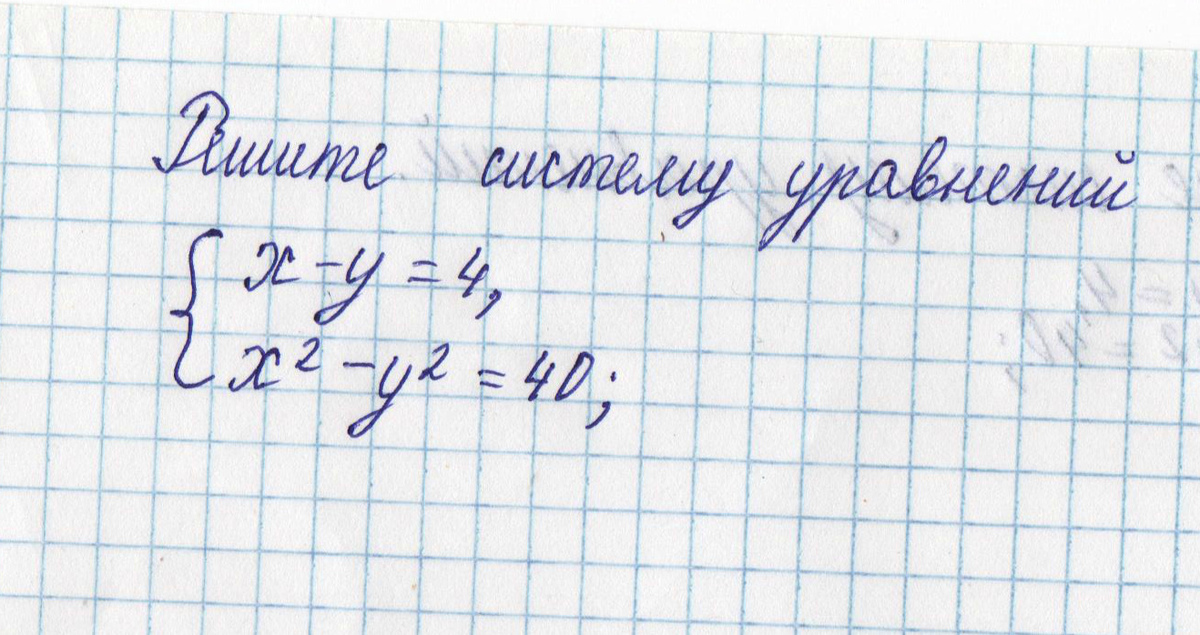 Решите систему уравнений
x - y = 4,
x² - y² = 40;